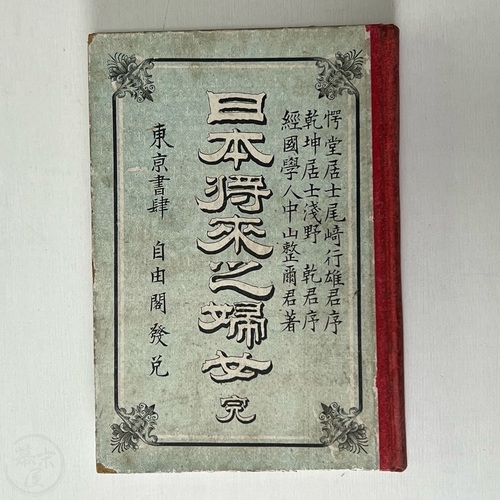 愕堂居士尾崎行雄君序
乾坤居士淺野乾君序
經國學人中山整爾君著
日本将来之婦女 完
東京書肆 自由閣發兌